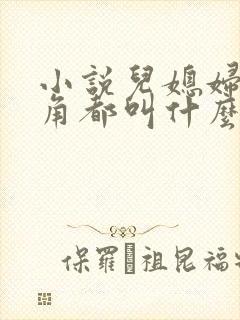 小說兒媳婦
角都叫什麼
保羅·祖昆福